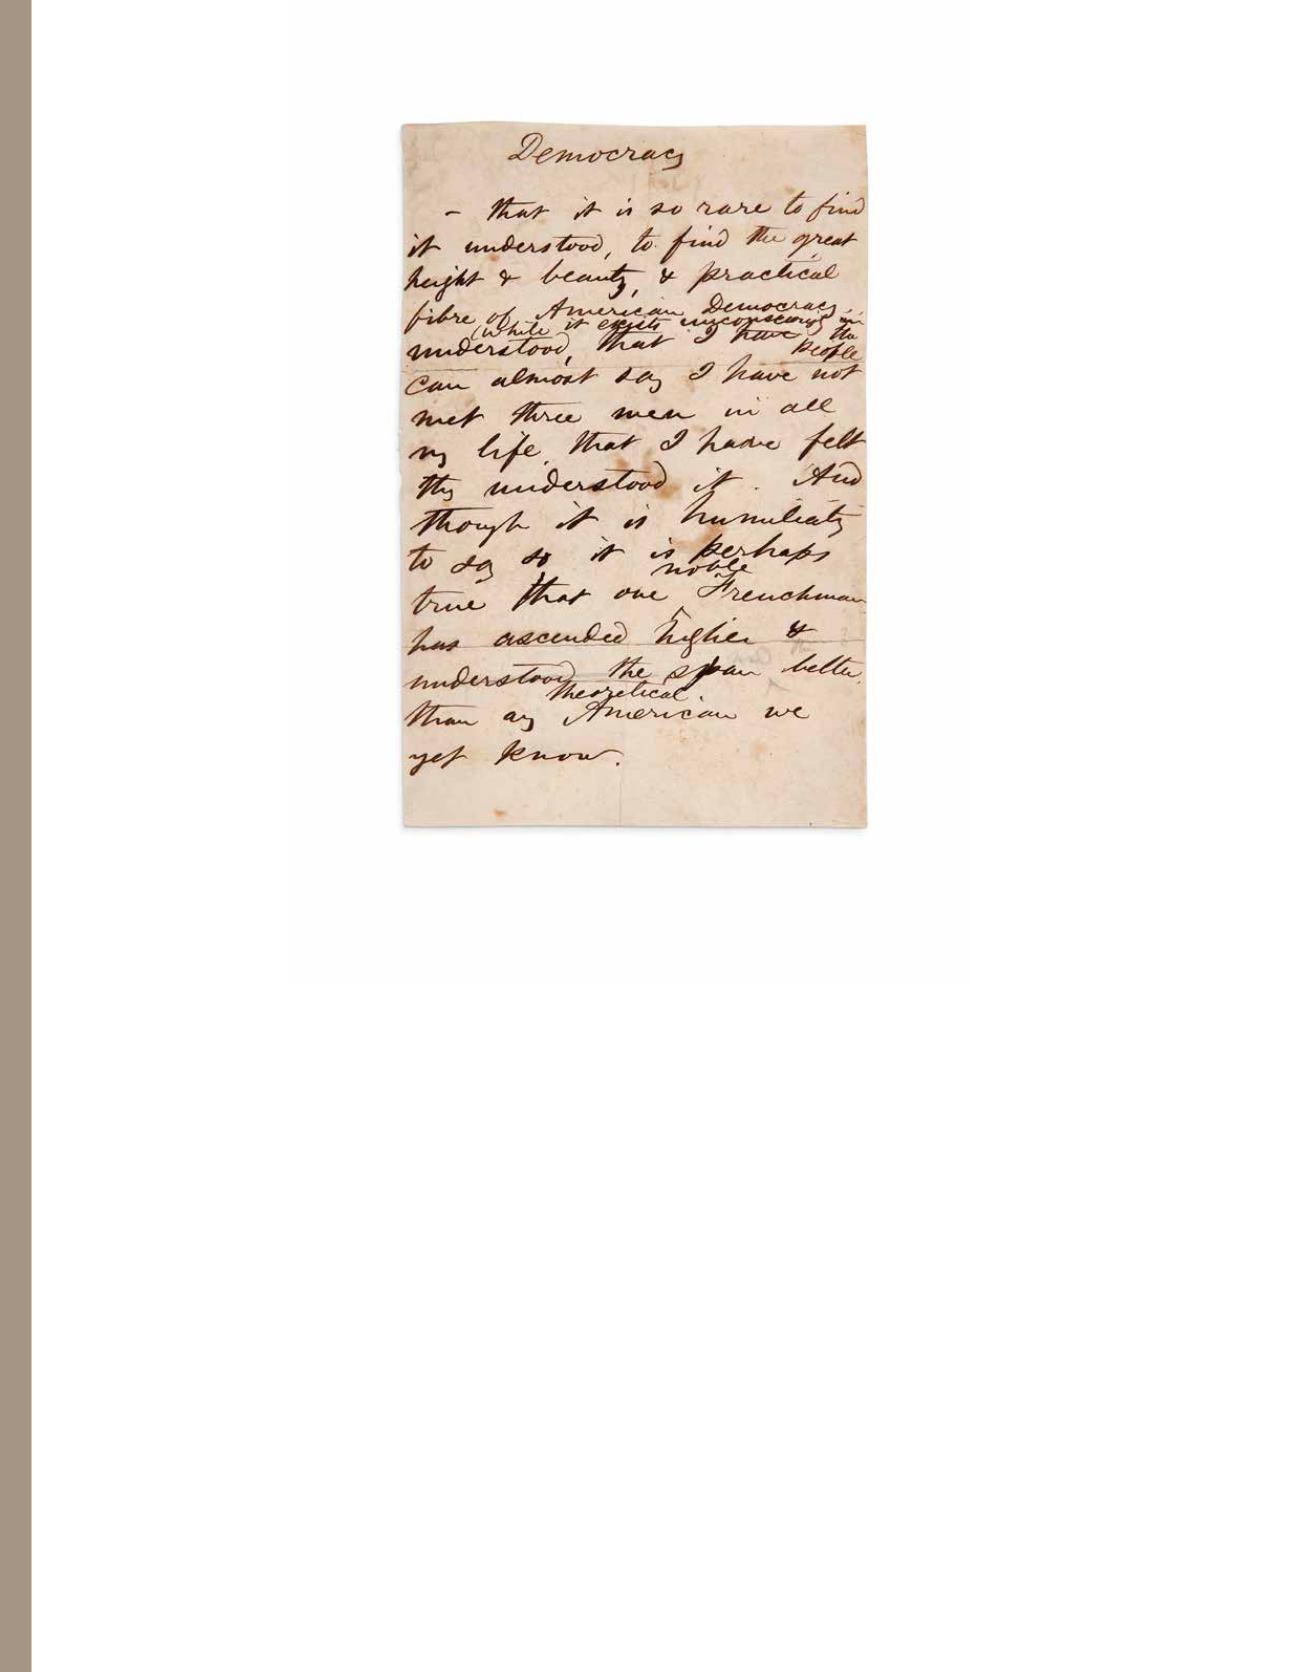 Democracy
- that it is so rare to find
it understood, to find the great
height & beauty, & practical
fibre of American Democracy
(while it exists unconsciously in
the
people
understood, that I have
can almost say I have not
met three men in all
my life, that I have felt
they understood it. And
though it is humiliating
to say so it is perhaps
noble
true that one Frenchman
has ascended higher &
understood the span better
theoretical
than any American we
yet know.